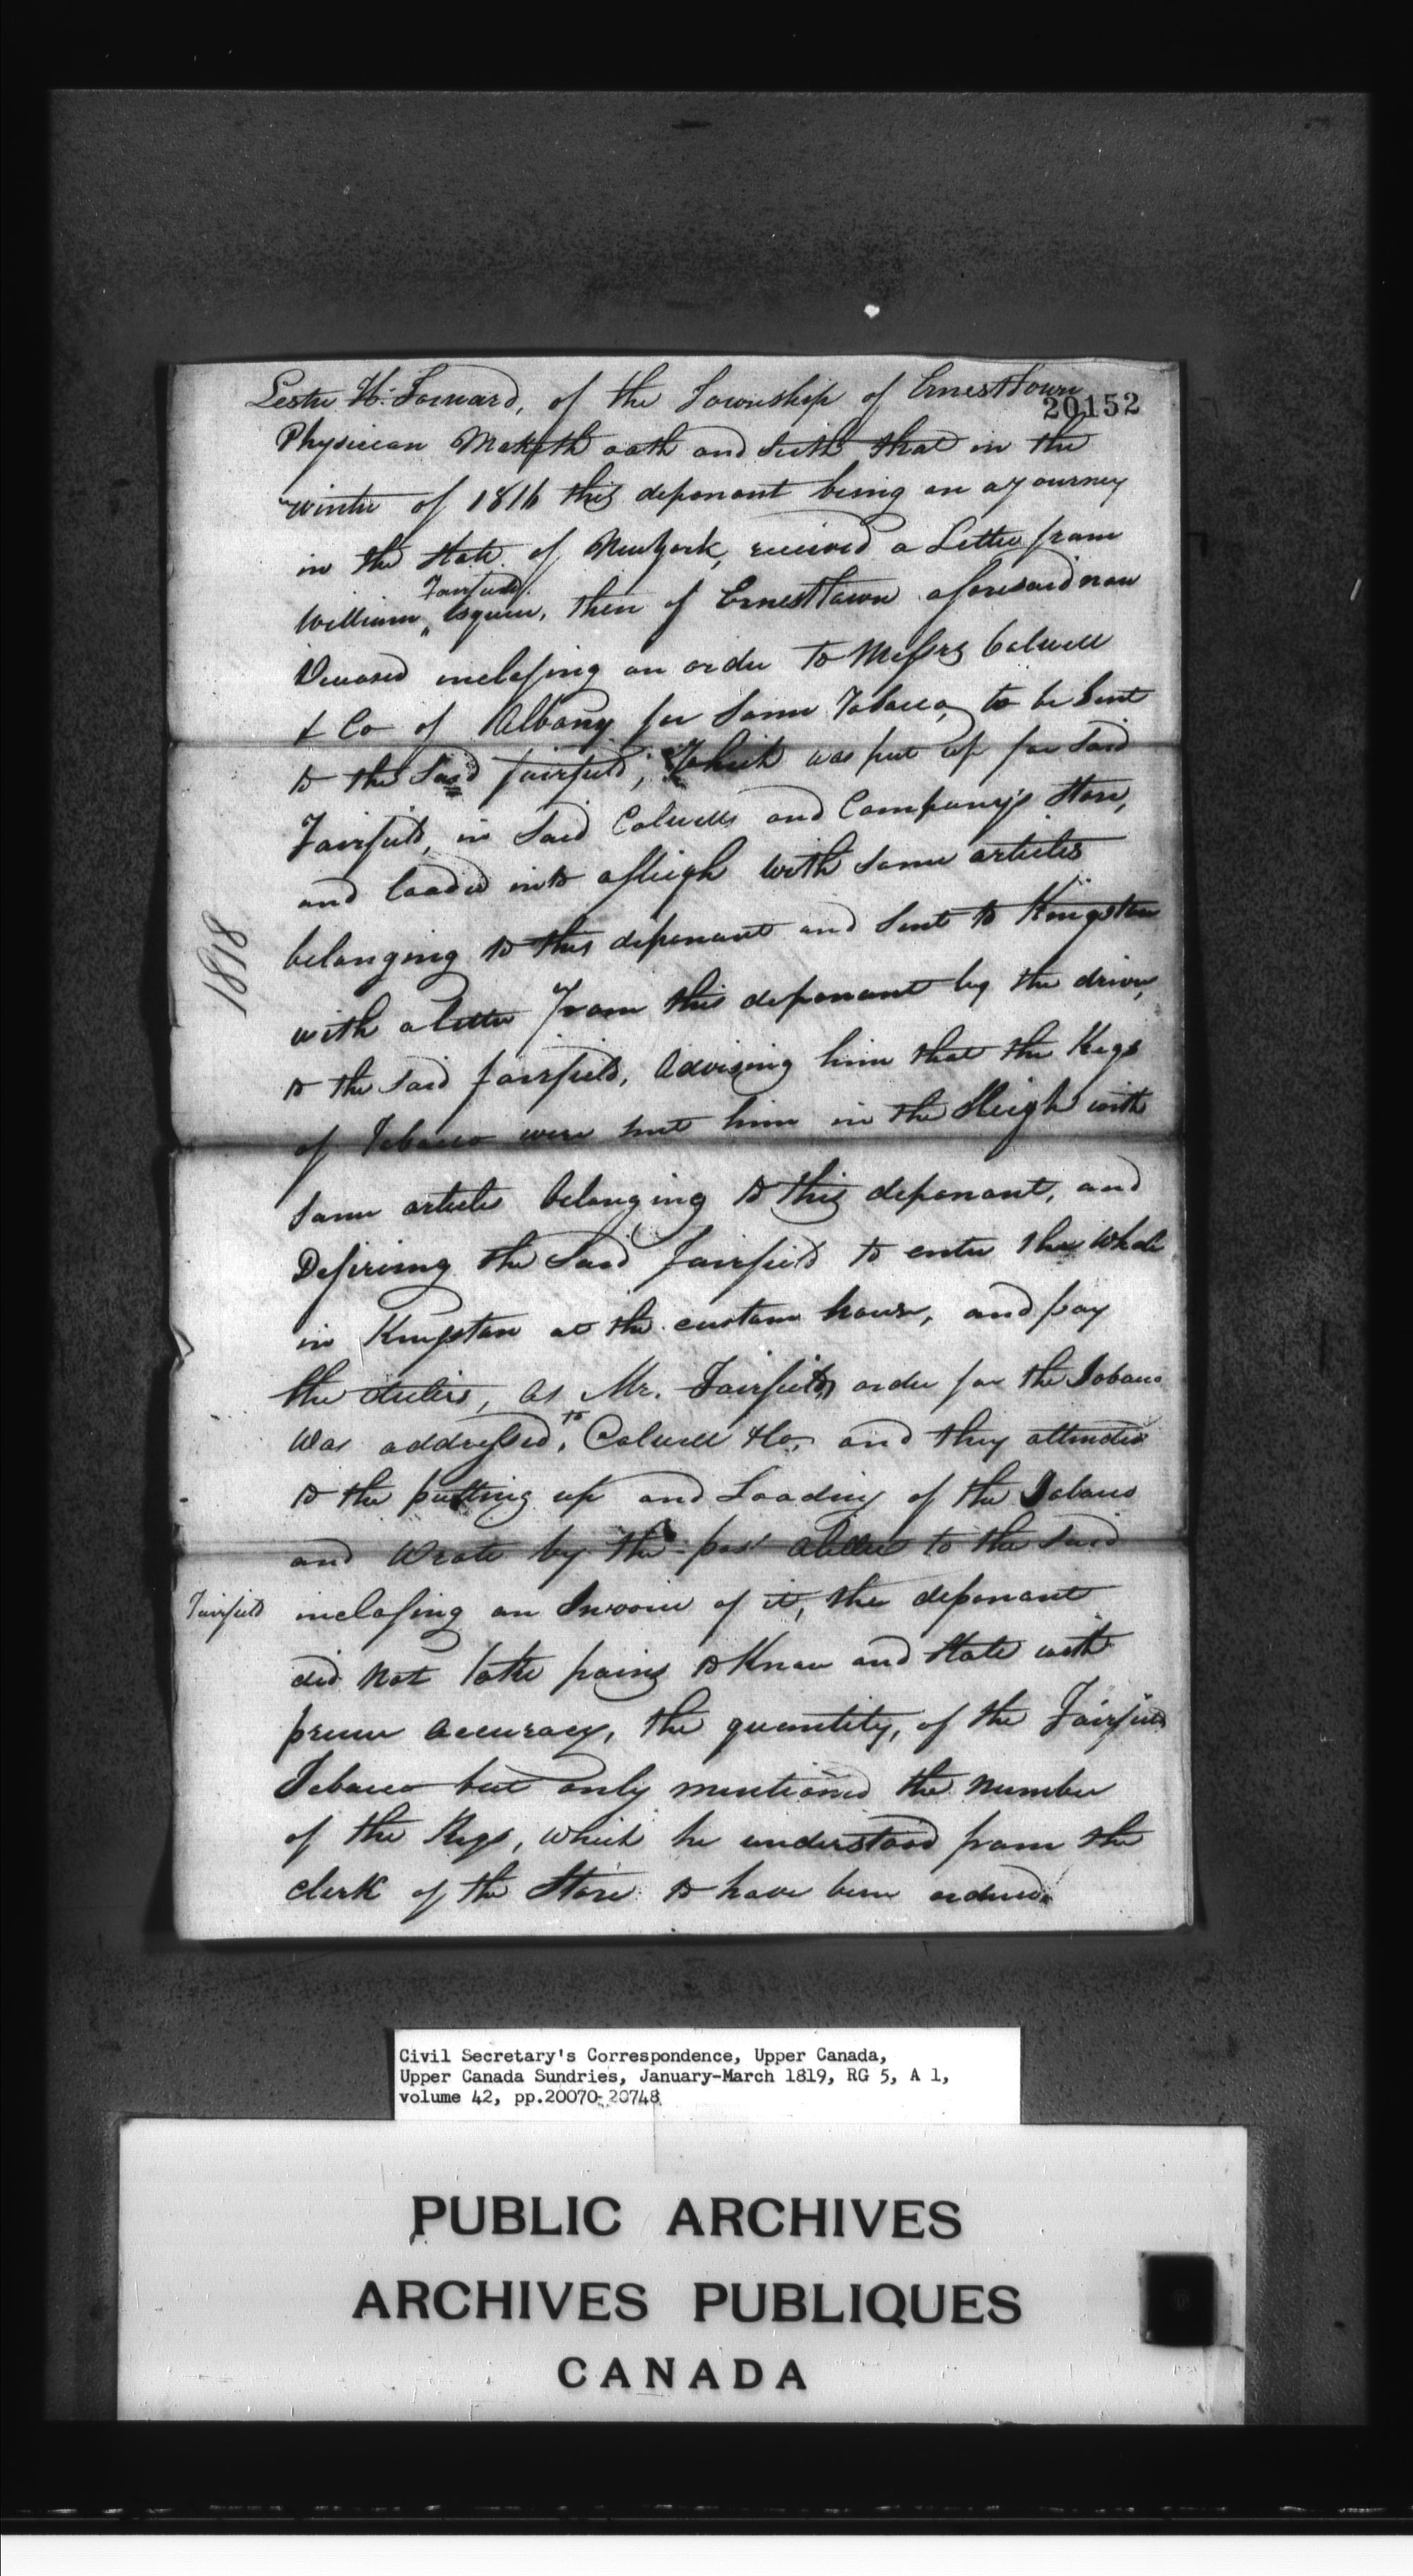 Lester H. Forward, of the Township of Ernesttown
20152
Physician Maketh oath and seith that in the
winter of 1816 this deponant being on a Journey
in the State of Newyork, received a Letter from
Fairfield
William Esquire, then of Ernesttown aforesaid now
Deceased inclosing an order to Messrs Colwell
& Co of Albany for some Tobacco, to be sent
to the said fairfield; Which was put up for said
Fairfield, in said Colwells and Company's Store,
and loaded into a sleigh with some articles
belonging to this deponant and sent to Kingston
1818
with a letter From this deponant by the driver,
to the said fairfield, Advising him that the Kegs
of Tobacco were sent him in the Sleigh with
some articles belonging to this deponant, and
Desireing the said fairfield to enter the whole
in Kingston at the custom house, and pay
the duties, as Mr. Fairfields order for the Tobacco
to
was addressed, Colwell & Co, and they attended
to the putting up and Loading of the Tobacco
and wrote by the post a letter to the said
Fairfield inclosing an Invoice of it, the deponant
did not take pains to Know and State with
precise accuracy, the quantity, of the Fairfield
Tobacco but only mentioned the number
of the Kegs, which he understood from the
clerk of the Store to have been ordered.
Civil Secretary's Correspondence, Upper Canada,
Upper Canada Sundries, January-March 1819, RG 5, A 1,
volume 42, pp.20070-20748
PUBLIC ARCHIVES
ARCHIVES PUBLIQUES
CANADA